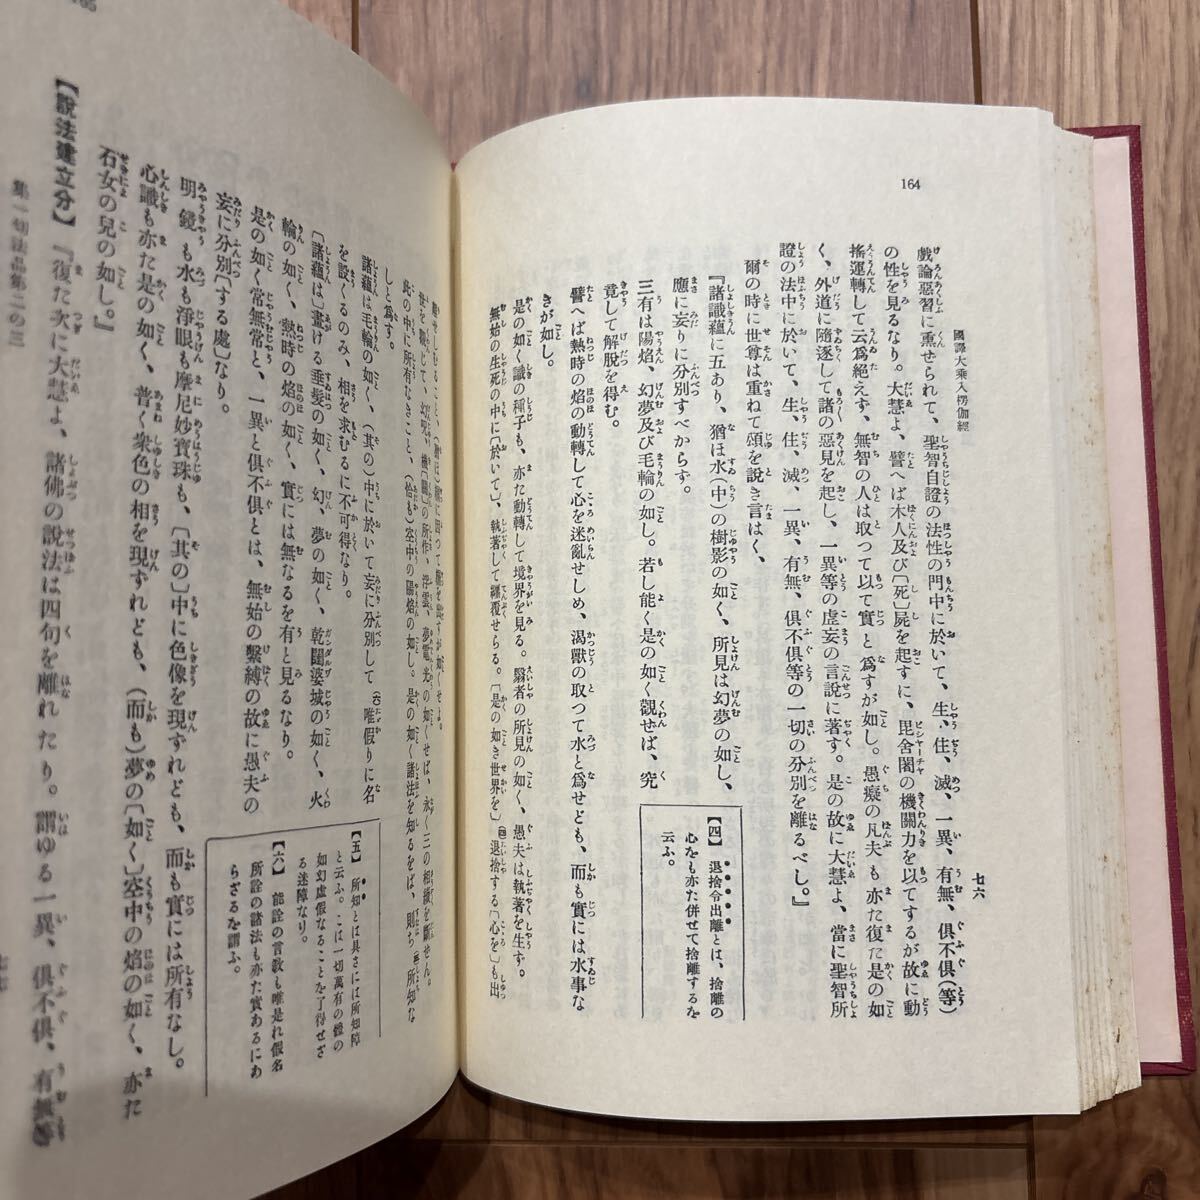 164
國譯大乘入楞伽經
七六
戲論惡習に熏せられて、聖智自證の法性の門中に於いて、生、住、滅、一異、有無、俱不俱(等)
の性を見るなり。大慧よ、譬へば木人及び〔死〕屍を起すに、毘舍闍の機關力を以てするが故に動
搖運轉して云爲絕えず、無智の人は取つて以て實と爲すが如し。愚癡の凡夫も亦た復た是の如
く、外道に隨逐して諸の惡見を起し、一異等の虛妄の言說に著す。是の故に大慧よ、當に聖智所
證の法中に於いて、生、住、滅、一異、有無、俱不俱等の一切の分別を離るべし。』
爾の時に世尊は重ねて頌を說き言はく、
『諸識蘊に五あり、猶は水(中)の樹影の如く、所見は幻夢の如し、
應に妄りに分別すべからず。
三有は陽焰、幻夢及び毛輪の如し。若し能く是の如く觀せば、究
竟して解脫を得む。
譬へば熱時の焰の動轉して心を迷亂せしめ、渴獸の取つて水と爲せども、而も實には水事な
きが如し。
是の如く識の種子も、亦た動轉して境界を見る。翳者の所見の如く、愚夫は執著を生す。
無始の生死の中に〔於いて〕、執著して纏覆せらる。〔是の如き世界を〕退捨する〔心を〕も出
【四】 退捨令出離とは、捨離の
心をも亦た併せて捨離するを
云ふ。
世を觀じて、幻呪、機〔關〕の所作、浮雲、夢電光の如くせば、永く三の相續を斷せん。
此の中に所有なきこと、(恰も)空中の陽焰の如し。是の如く諸法を知るをば、則ち所知な
しと爲す。
諸蘊は毛輪の如く、(其の)中に於いて妄に分別して(六)唯假りに名
を設くるのみ、相を求むるに不可得なり。
〔諸蘊は〕畫ける垂髮の如く、幻、夢の如く、乾闥婆城の如く、火
輪の如く、熱時の焰の如く、實には無なるを有と見るなり。
是の如く常無常と、一異と俱不俱とは、無始の繫縛の故に愚夫の
妄に分別〔する處〕なり。
明鏡も水も淨眼も摩尼妙寶珠も、〔其の〕中に色像を現ずれども、而も實には所有なし。
心識も亦た是の如く、普く衆色の相を現ずれども、(而も)夢の〔如く〕空中の焰の如く、亦た
石女の兒の如し。』
【五】 所知とは具さには所知障
と云ふ。こは一切萬有の體の
如幻虛假なることを了得せざ
る迷障なり。
【六】 能詮の言敎も唯是れ假名
所詮の諸法も亦た實あるにあ
らざるを謂ふ。
【說法建立分】『復た次に大慧よ、諸佛の說法は四句を離れたり。謂ゆる一異、俱不俱、有無等
集一切法品第二の三